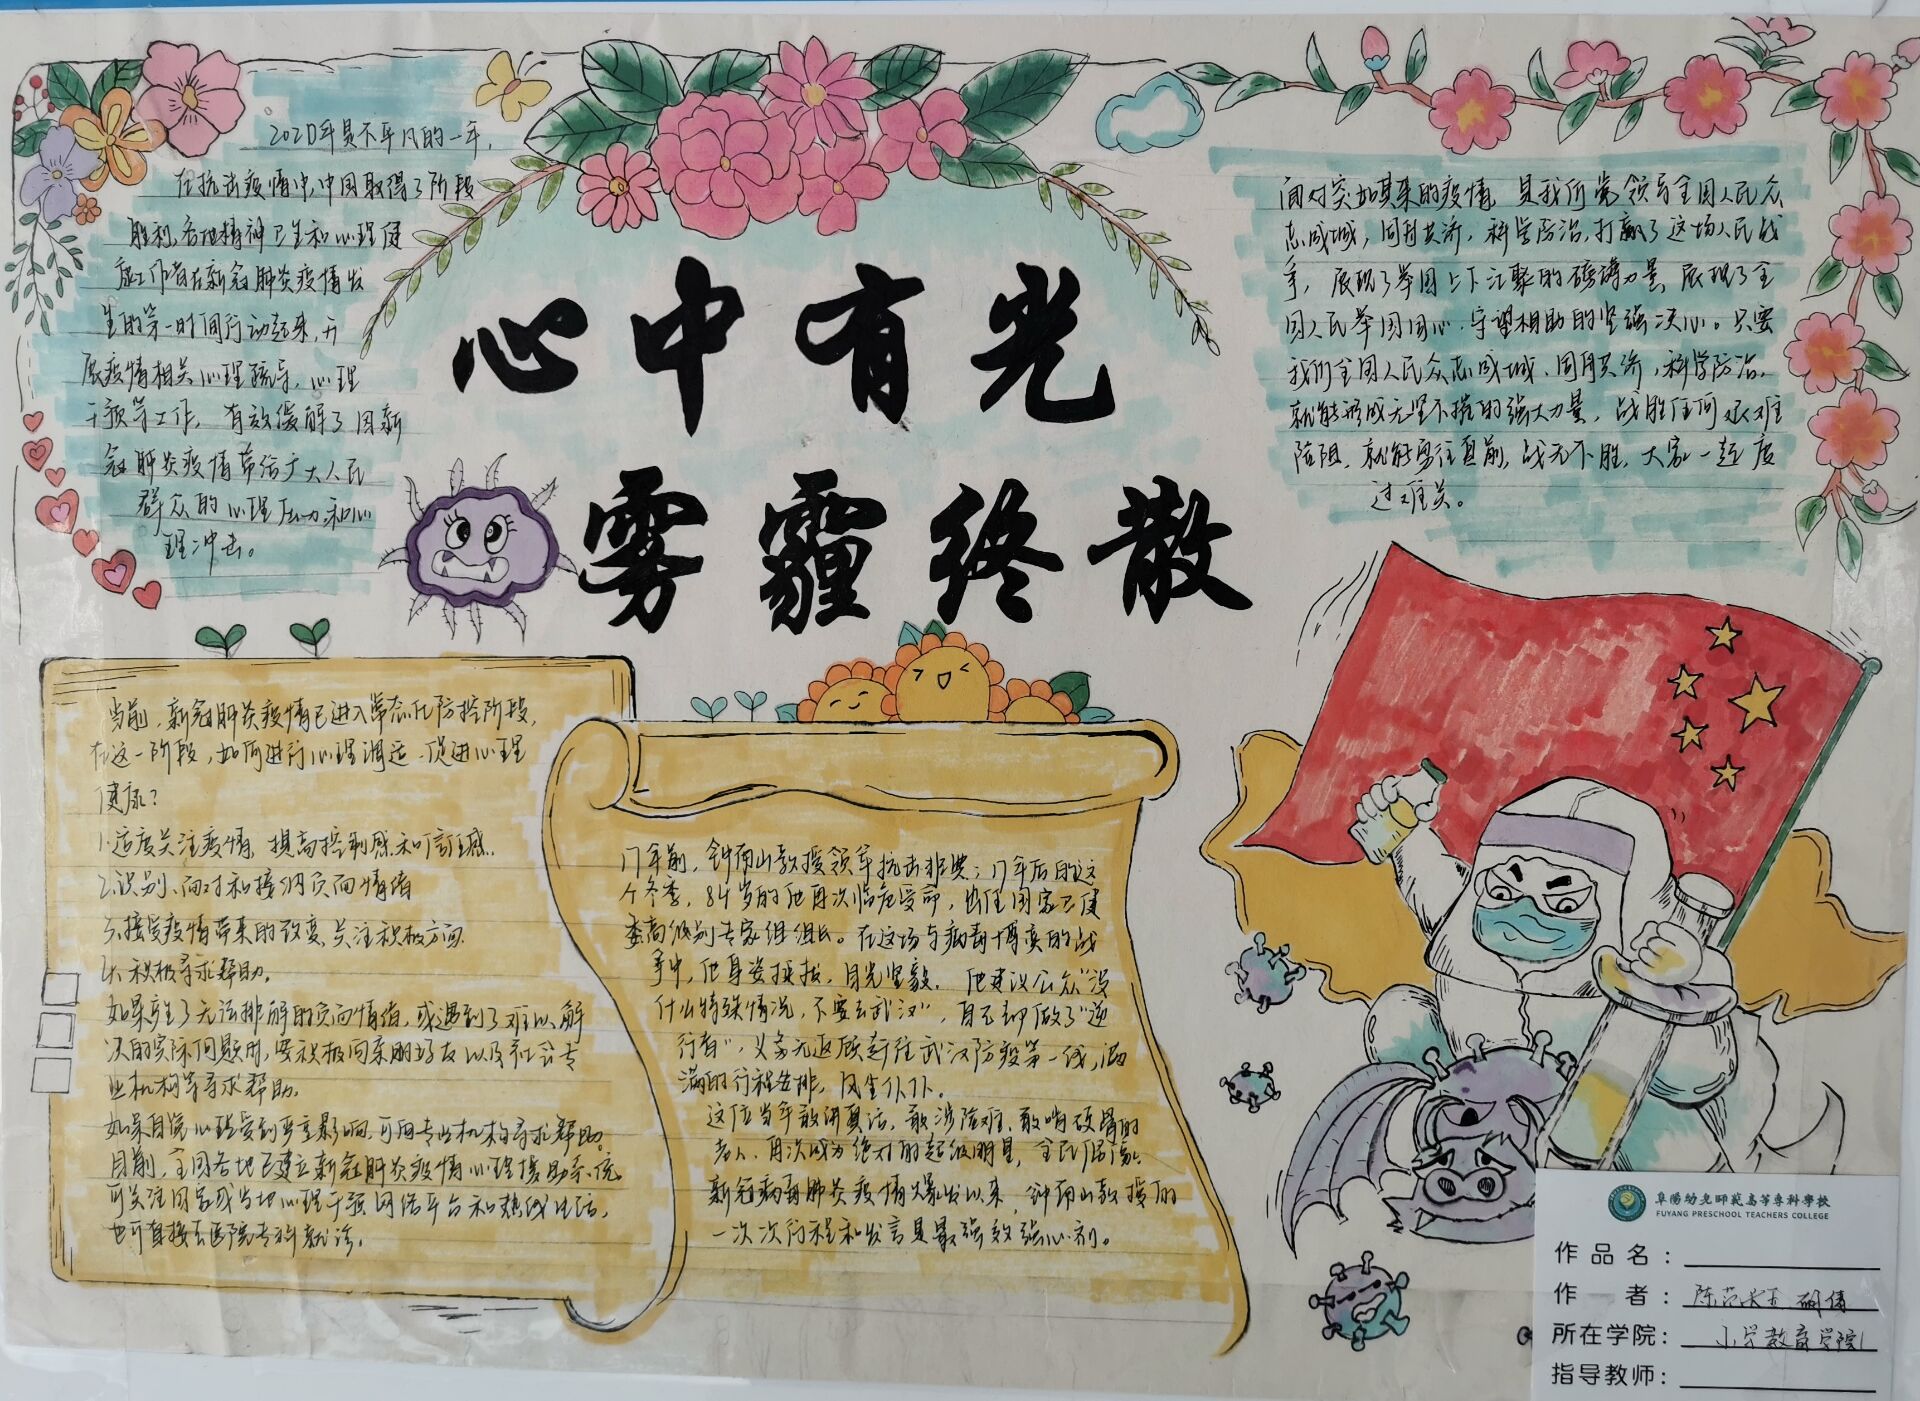 2020年是不平凡的一年,
在抗击疫情中,中国取得了阶段
胜利,各地精神卫生和心理健
康工作者在新冠肺炎疫情发
生的第一时间行动起来,开
展疫情相关心理疏导、心理
干预等工作,有效缓解了因新
冠肺炎疫情带给广大人民
群众的心理压力和心
理冲击。
心中有光
雾霾终散
面对突如其来的疫情,是我们党领导全国人民众
志成城,同舟共济,科学防治,打赢了这场人民战
争,展现了举国上下汇聚的磅礴力量,展现了全
国人民举国同心、守望相助的坚强决心。只要
我们全国人民众志成城、同舟共济,科学防治,
就能形成无坚不摧的强大力量,战胜任何艰难
险阻,就能勇往直前,战无不胜,大家一起度
过难关。
当前,新冠肺炎疫情已进入常态化防控阶段,
在这一阶段,如何进行心理调适、促进心理
健康?
1.适度关注疫情,提高控制感和信任感.
2.识别、面对和接纳负面情绪
3.接受疫情带来的改变,关注积极方面.
4.积极寻求帮助.
如果产生了无法排解的负面情绪,或遇到了难以解
决的实际问题时,要积极向亲朋好友以及社会专
业机构等寻求帮助.
如果自觉心理受到严重影响,可向专业机构寻求帮助。
目前,全国各地已建立新冠肺炎疫情心理援助系统,
可关注国家或当地心理干预网络平台和热线电话,
也可直接去医院专科就诊。
17年前,钟南山教授领军抗击非典;17年后的这
个冬季,84岁的他再次临危受命,出任国家卫健
委高级别专家组组长。在这场与病毒博弈的战
争中,他身姿挺拔,目光坚毅.他建议公众“没
什么特殊情况,不要去武汉”,自己却做了“逆
行者”,义务无返顾赶往武汉防疫第一线,满
满的行程安排,风尘仆仆.
这位当年敢讲真话,敢涉险难、敢啃硬骨的
老人,再次成为绝对的超级明星,全民偶像.
新冠病毒肺炎疫情爆发以来,钟南山教授的
一次次行程和发言是最强效强心剂。
阜阳幼儿师范高等专科学校
FUYANG PRESCHOOL TEACHERS COLLEGE
作品名:
作 者:
所在学院: 小学教育学院
指导教师: